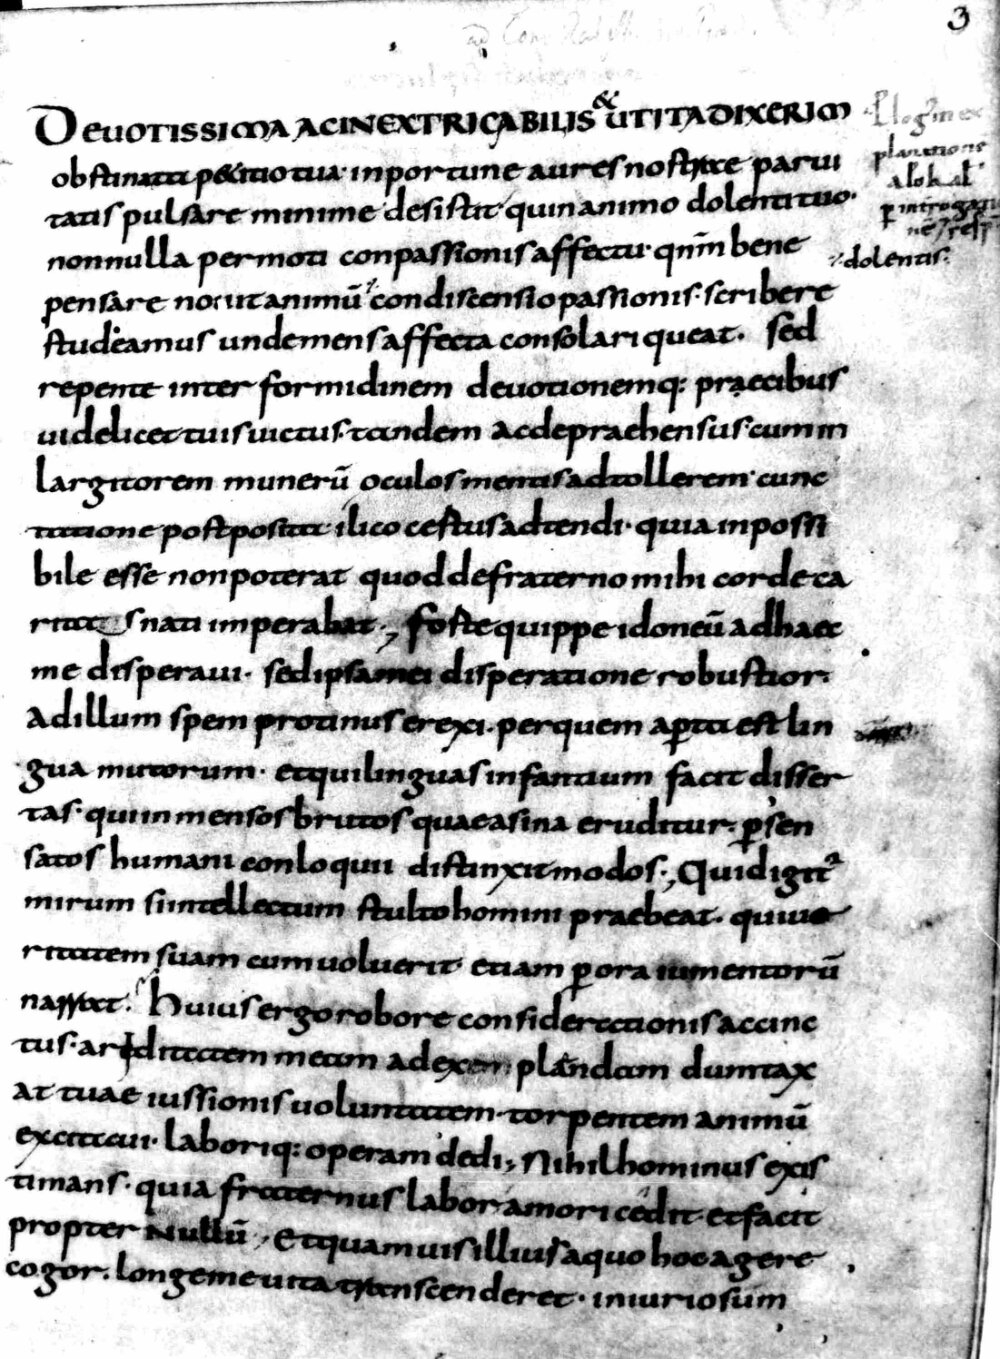 3
DEUOTISSIMA AC INEXTRICABILIS & UT ITA DIXERIM
obstinata p&itio tua· inportune aures nostrae parui
tatis pulsare minime desistit· quin animo dolenti tuo·
nonnulla permoti conpassionis affectu· qnm̄ bene
dolentis·
pensare nos ut animū condiscensio passionis· scribere
studeamus unde mens affecta consolari queat· sed
repente inter formidinem deuotionemq: praecibus
uidelicet tuis uictus· tandem ac depraehensus cum in
largitorem munerū oculos mentis adtollerem· cunc
tatione postposita ilico cestus adtendi· quia inpossi
bile esse non poterat quod de fraterno mihi corde ca
ritatis nati imperabat·, foste quippe idoneū ad haec
me disperaui· sed ipsa mei disperatione robustior·
ad illum spem protinus erexi· per quem aperta est lin
gua mutorum· et qui linguas infantium facit disser
tas· qui inmensos brutos quae asina eruditur· p sen
satos humani conloquii distinxit modos·, Quid igitr
mirum si intellectum stulto homini praebeat· qui ue
ritatem suam cum uoluerit etiam p ora iumentorū
narrat· Huius ergo robore considerationis accinc
tus· ariditatem meam ad exemplandam dumtax
at tuae iussionis uoluntatem· torpentem animū
excitaui· laboriq: operam dedi·, Nihilhominus exis
timans· quia fraternus labor amori cedit· et facit
propter Nullū·, Et quamuis illius a quo hoc agere
cogor· longe me uita transcenderet· iniuriosum